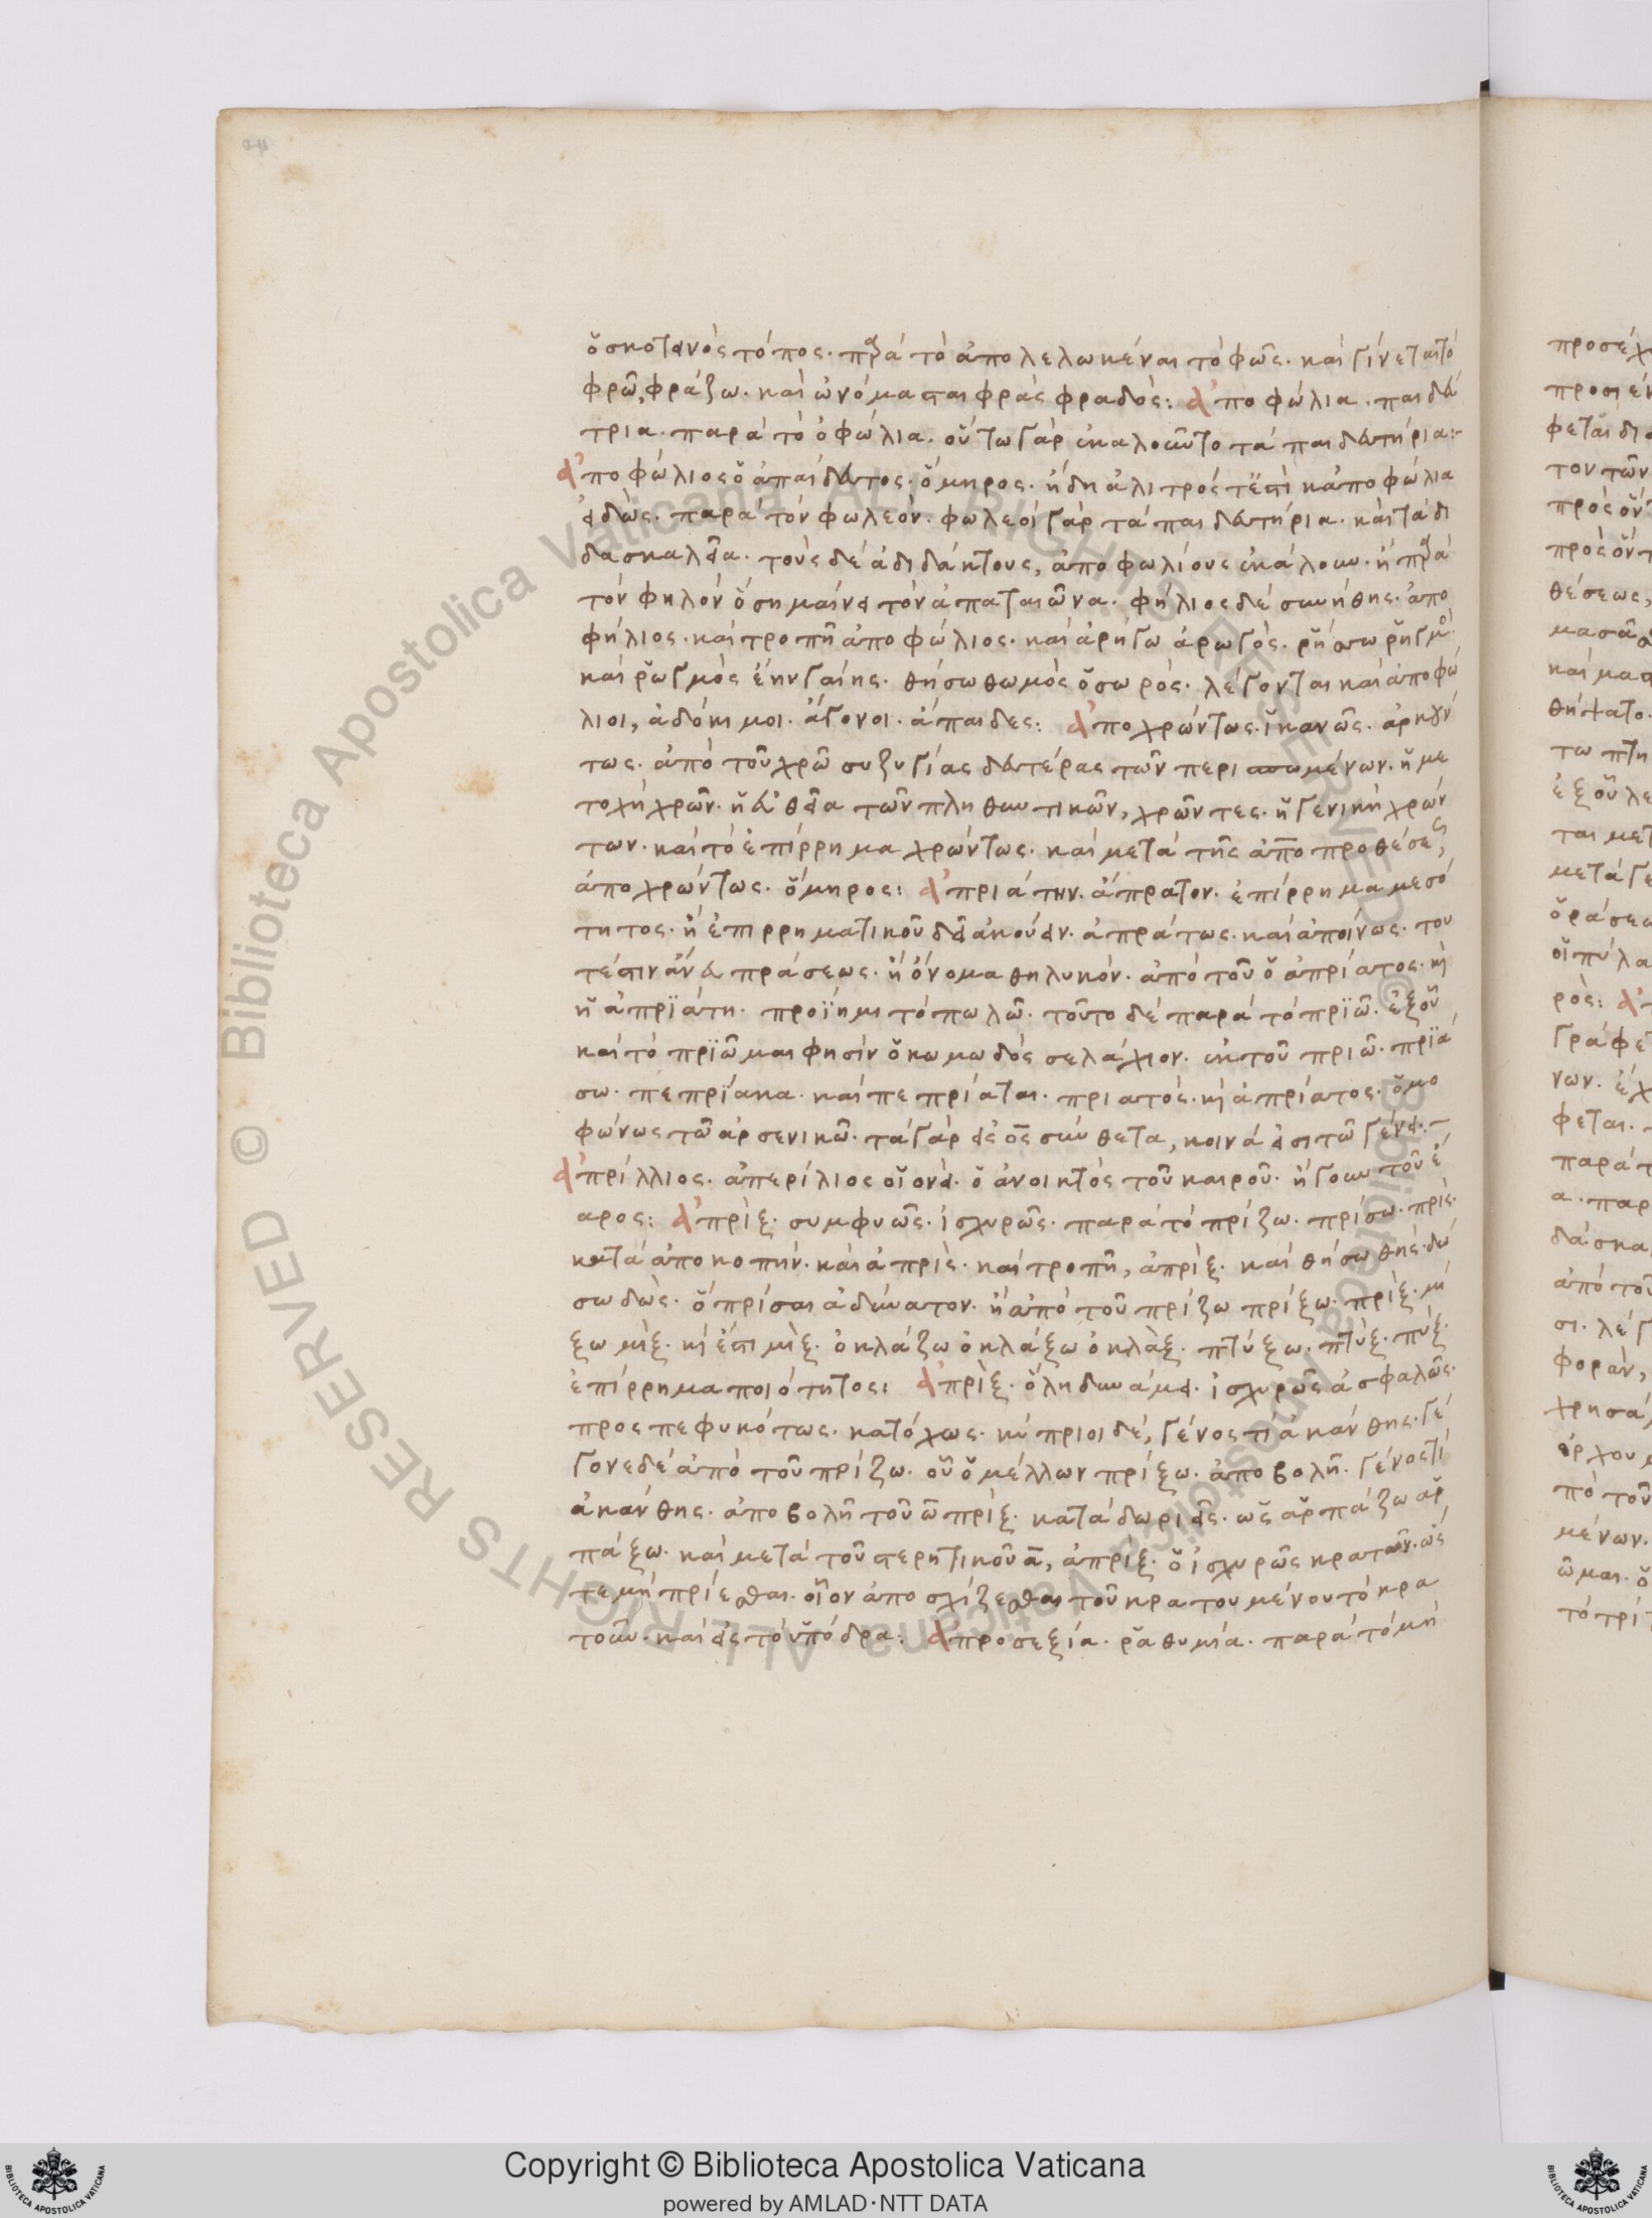 ὁ σκοτεινὸς τόπος. παρὰ τὸ ἀπολελωκέναι τὸ φῶς. καὶ γίνεται τὸ
φρῶ, φράζω. καὶ ὠνόμασται φρὰς φραδὸς: ἀποφώλια. παιδευ
τρια. παρὰ τὸ ὀφώλια. οὕτω γὰρ ἐκαλοῦντο τὰ παιδευτήρια:-
ἀποφώλιος ὁ ἀπαίδευτος. ὅμηρος. ἦ δὴ ἀλιτρός τ' ἐστὶ κἀποφώλια
εἰδὼς. παρὰ τὸν φωλεόν. φωλεοὶ γὰρ τὰ παιδευτήρια. καὶ τὰ δι
δασκαλεῖα. τοὺς δὲ ἀδιδάκτους, ἀποφωλίους ἐκάλουν. ἢ παρὰ
τὸν φηλὸν ὃ σημαίνει τὸν ἀπαταιῶνα. φήλιος δὲ συνήθης. ἀπο
φήλιος. καὶ τροπῆ ἀποφώλιος. καὶ ἀρήγω ἀρωγὸς. ῥήσσω ῥηγμὸ
καὶ ῥωγμὸς ἔην γαίης. θήσω θωμὸς ὁ σωρὸς. λέγονται καὶ ἀποφώ
λιοι, ἀδόκιμοι. ἄγονοι. ἄπαιδες: ἀποχρώντως. ἱκανῶς. ἀρκούν
τως. ἀπὸ τοῦ χρῶ συζυγίας δευτέρας τῶν περισπωμένων. ἡ με
τοχὴ χρῶν. ἡ εὐθεῖα τῶν πληθυντικῶν, χρῶντες. ἡ γενικὴ χρών
των. καὶ τὸ ἐπίρρημα χρώντως. καὶ μετὰ τῆς ἀπὸ προθέσεως,
ἀποχρώντως. ὅμηρος: ἀπριάτην. ἄπρατον. ἐπίρρημα μεσό
τητος. ἢ ἐπιρρηματικοῦ δεῖ ἀκούειν. ἀπράτως. καὶ ἀποίνως. του
τέστιν ἄνευ πράσεως. ἢ ὄνομα θηλυκόν. ἀπὸ τοῦ ὁ ἀπρίατος. καὶ
ἡ ἀπριάτη. προΐημι τὸ πωλῶ. τοῦτο δὲ παρὰ τὸ πριῶ. ἐξ οὗ
καὶ τὸ πριῶμαι φησὶν ὁ κωμωδὸς σελάχιον. ἐκ τοῦ πριῶ. πριά
σω. πεπρίακα. καὶ πεπρίαται. πριατός. καὶ ἀπρίατος. ὁμο
φώνως τῶ ἀρσενικῶ. τὰ γὰρ εἰς ος σύνθετα, κοινά εἰσι τῶ γένει.-
ἀπρίλλιος. ἀπερίλιος οἱονεὶ. ὁ ἀνοικτὸς τοῦ καιροῦ. ἤγουν τοῦ ἔ
αρος: ἀπρὶξ. συμφυῶς. ἰσχυρῶς. παρὰ τὸ πρίζω. πρίσω. πρὶς.
κατὰ ἀποκοπήν. καὶ ἀπρὶς. καὶ τροπῆ, ἀπρὶξ. καὶ θήσω θὴς. δώ
σω δὼς. ὃ πρίσαι ἀδύνατον. ἢ ἀπὸ τοῦ πρίζω πρίξω. πρὶξ. μί
ξω μὶξ. καὶ ἔστι μὶξ. ὀκλάζω ὀκλάξω ὀκλὰξ. πτύξω. πτὺξ. πύξ.
ἐπίρρημα ποιότητος: ἀπρὶξ. ὅλη δυνάμει. ἰσχυρῶς ἀσφαλῶς.
προσπεφυκότως. κατόχως. κύπριοι δέ, γένος τι ἀκάνθης. γέ
γονε δὲ ἀπὸ τοῦ πρίζω. οὗ ὁ μέλλων πρίξω. ἀποβολῆ. γένος τι
ἀκάνθης. ἀποβολῆ τοῦ ω πρὶξ. κατὰ δωριεῖς. ὡς ἁρπάζω ἁρ
πάξω. καὶ μετὰ τοῦ στερητικοῦ α, ἀπρίξ. ὁ ἰσχυρῶς κρατῶν. ὡς
τε μὴ πρίεσθαι. οἷον ἀποσχίζεσθαι τοῦ κρατουμένου τὸ κρα
τοῦν. καὶ εἰς τὸ ὑπόδρα: ἀπροσεξία. ῥαθυμία. παρὰ τὸ μὴ